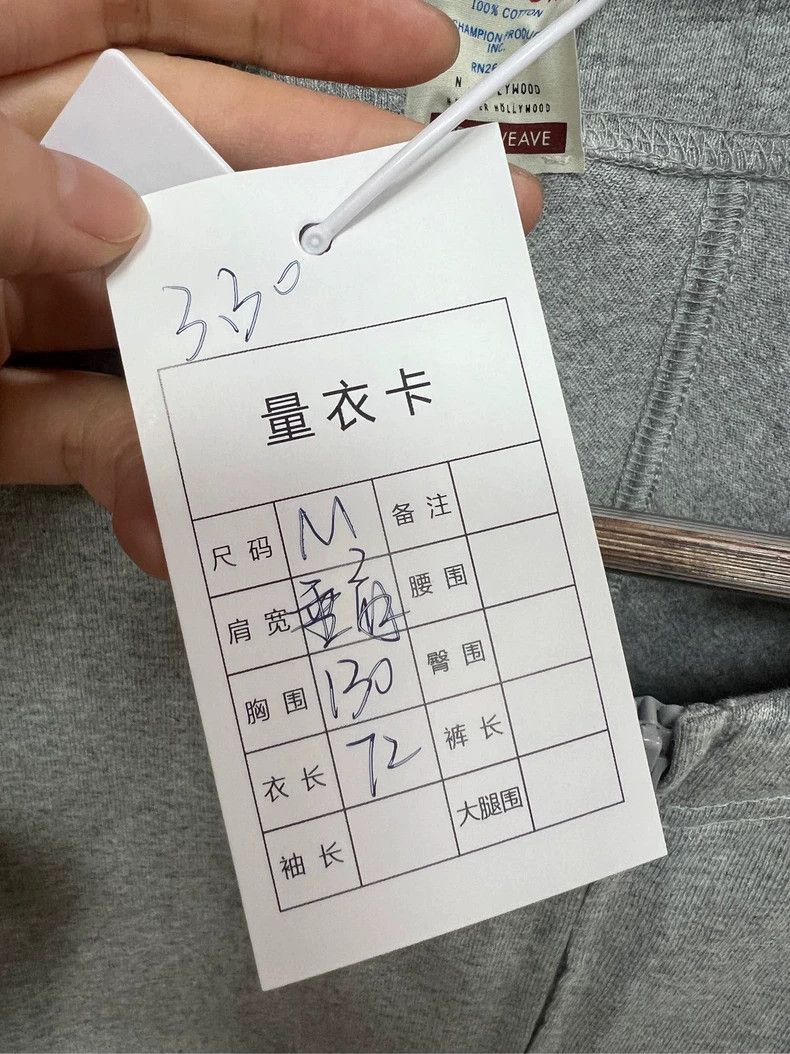 100% COTTON
CHAMPION PRODU
INC.
RN26
N
LYWOOD
ER HOLLYWOOD
WEAVE
330
量衣卡
尺码 M 备注
肩宽 腰围
胸围 130 臀围
衣长 72 裤长
袖长 大腿围